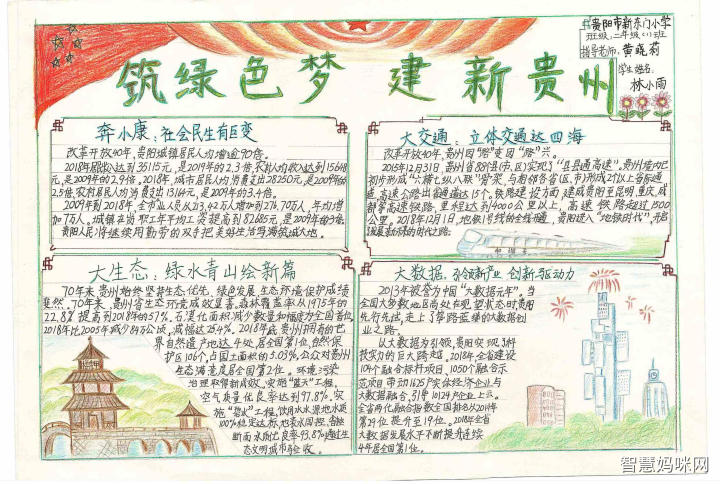 贵阳市新东门小学
班级：二年级(1)班
指导老师：黄晓莉
学生姓名：
林小雨
筑绿色梦 建新贵州
奔小康：社会民生有巨变
改革开放40年，贵阳城镇居民人均增逾90倍。
2018年居民收入达到35115元，是2019年的2.3倍，农村人均收入达到15648
元，是2009年的2.9倍，2018年城市居民人均消费支出28250元，是2009年的
2.5倍，农村居民人均消费支出13164元，是2009年的3.4倍。
2009年到2018年，全市就业人员从213.42万人增加到276.70万人，年均增
加7万人。城镇在岗职工年平均工资提高到82685元，是2009年的3倍。
贵阳人民将继续用勤劳的双手把美好生活写满筑城大地。
大交通：立体交通达四海
改革开放40年，贵州因“路”变因“路”兴。
2015年12月31日，贵州省88个县(市、区)实现了“县县通高速”。贵州境内已
高速公路出省通道达15个。铁路建设方面建成贵阳至昆明、重庆、成
都等高速铁路，里程达到4000公里以上，高速铁路超过1500
公里。2018年12月1日，地铁1号线的全线开通，贵阳进入“地铁时代”，开启
大生态：绿水青山绘新篇
70年来，贵州始终坚持生态优先、绿色发展，生态环境保护成绩
斐然。70年来，贵州省生态环境成效显著，森林覆盖率从1975年的
22.8%提高到2018年的57%。石漠化面积减少数量和幅度为全国首位，
2018年比2005年减少84万公顷，减幅达25.4%。2018年底贵州拥有的世
界自然遗产地达4处，居全国第1位，自然保
护区106个，占国土面积的5.09%，公众对贵州
生态满意度居全国第2位。环境污染
治理取得新成效，实施“蓝天”工程，
空气质量优良率达到97.8%，实
施“碧水”工程，饮用水水源地水质
100%稳定达标，地表水国控、省控
断面水质优良率93.8%，通过生
态文明城市马验收。
大数据：引领新产业 创新驱动力
2013年被誉为中国“大数据元年”。当
全国大多数地区尚处在观望状态时贵阳
先行先试，走上了筚路蓝缕的大数据创
业之路。
以大数据为引领，贵阳实现了科
技实力的巨大跨越。2018年全省建设
104个融合标杆项目、1050个融合示
范项目，带动1625户实体经济企业与
大数据融合，引导10124户企业上云。
全省两化融合指数全国排名从2014年
第29位提升至19位。2018年全省
大数据发展水平不断提升连续
4年居全国第1位。
和谐号
智慧妈咪网